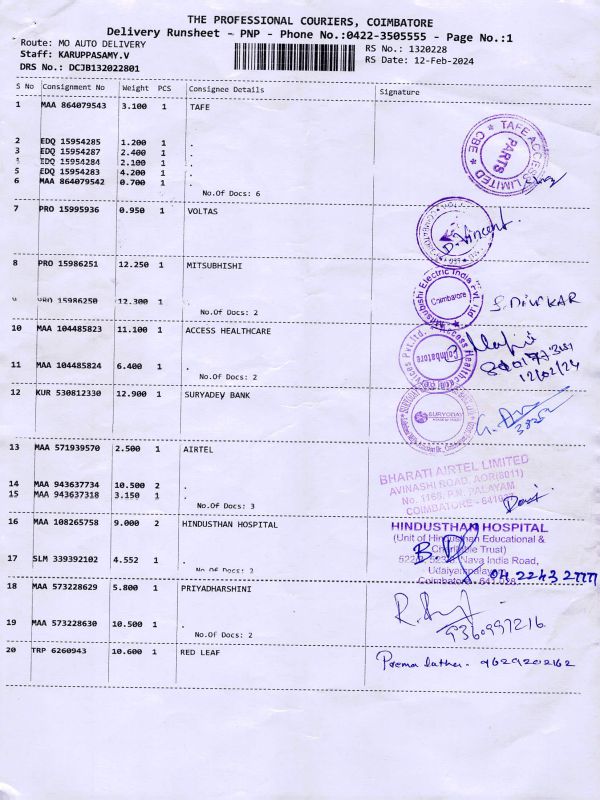 THE PROFESSIONAL COURIERS, COIMBATORE
Delivery Runsheet - PNP - Phone No.:0422-3505555 - Page No.:1
Route: MO AUTO DELIVERY
RS No.: 1320228
Staff: KARUPPASAMY.V
RS Date: 12-Feb-2024
DRS No.: DCJB132022801
S No Consignment No Weight PCS Consignee Details Signature
1 MAA 864079543 3.100 1 TAFE
2 EDQ 15954285 1.200 1 .
3 EDQ 15954287 2.400 1 .
4 EDQ 15954284 2.100 1 .
5 EDQ 15954283 4.200 1 .
6 MAA 864079542 0.700 1 .
No.Of Docs: 6
TAFE ACCESS LIMITED * CBE *
PARTS
7 PRO 15995936 0.950 1 VOLTAS
D. Vincent.
8 PRO 15986251 12.250 1 MITSUBHISHI
9 PRO 15986250 12.300 1 .
No.Of Docs: 2
Mitsubishi Electric India Pvt. Ltd
Coimbatore
S. DIVAKAR
10 MAA 104485823 11.100 1 ACCESS HEALTHCARE
11 MAA 104485824 6.400 1 .
No.Of Docs: 2
Access Healthcare Services Pvt. Ltd.
Coimbatore
12/02/24
12 KUR 530812330 12.900 1 SURYADEY BANK
SURYODAY
13 MAA 571939570 2.500 1 AIRTEL
14 MAA 943637734 10.500 2 .
15 MAA 943637318 3.150 1 .
No.Of Docs: 3
BHARATI AIRTEL LIMITED
AVINASHI ROAD, AOR(8011)
No. 1168, P.N. PALAYAM,
COIMBATORE - 6410
16 MAA 108265758 9.000 2 HINDUSTHAN HOSPITAL
17 SLM 339392102 4.552 1 .
No.Of Docs: 2
HINDUSTHAN HOSPITAL
(Unit of Hindusthan Educational &
Charitable Trust)
Nava India Road,
Udaiyampalayam
Coimbatore
18 MAA 573228629 5.800 1 PRIYADHARSHINI
19 MAA 573228630 10.500 1 .
No.Of Docs: 2
9360997216
20 TRP 6260943 10.600 1 RED LEAF
Prema latha - 9629202162